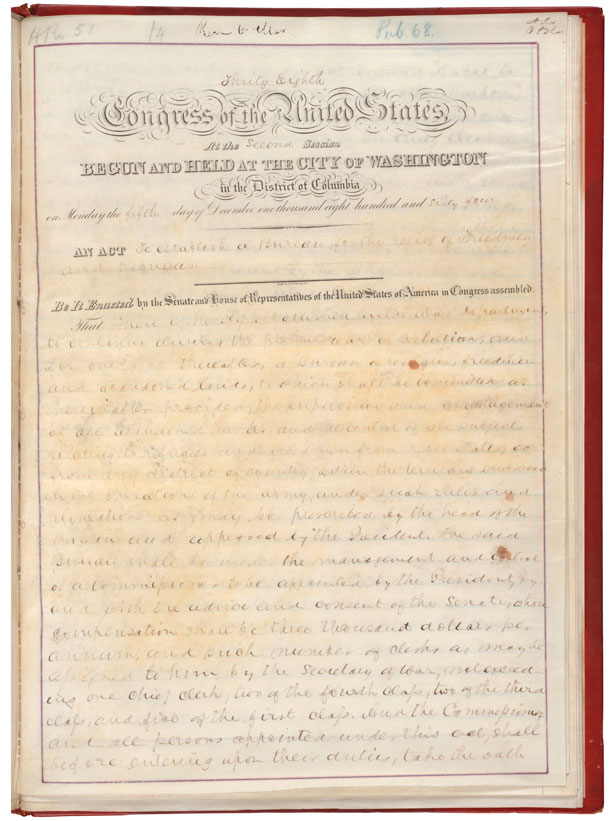 HR. 51 14 Pub 68.
Thirty Eighth
Congress of the United States,
At the Second Session
BEGUN AND HELD AT THE CITY OF WASHINGTON
in the District of Columbia
on Monday the fifth day of December one thousand eight hundred and sixty four
AN ACT To establish a Bureau for the relief of Freedmen
and Refugees
Be It Enacted by the Senate and House of Representatives of the United States of America in Congress assembled.
That there is hereby established in the War Department,
to continue during the present war of rebellion, and
for one year thereafter, a Bureau of refugees, freedmen
and abandoned lands, to which shall be committed, as
hereinafter provided, the supervision and management
of all abandoned lands, and the control of all subjects
relating to refugees and freedmen from rebel states, or
from any district of country within the territory embraced
in the operations of the army, under such rules and
regulations as may be prescribed by the head of the
bureau and approved by the President. The said
Bureau shall be under the management and control
of a Commissioner to be appointed by the President, by
and with the advice and consent of the Senate, whose
compensation shall be three thousand dollars per
annum, and such number of clerks as may be
assigned to him by the Secretary of War, not exceed-
ing one chief clerk, two of the fourth class, two of the third
class, and five of the first class. And the Commissioner
and all persons appointed under this act, shall
before entering upon their duties, take the oath